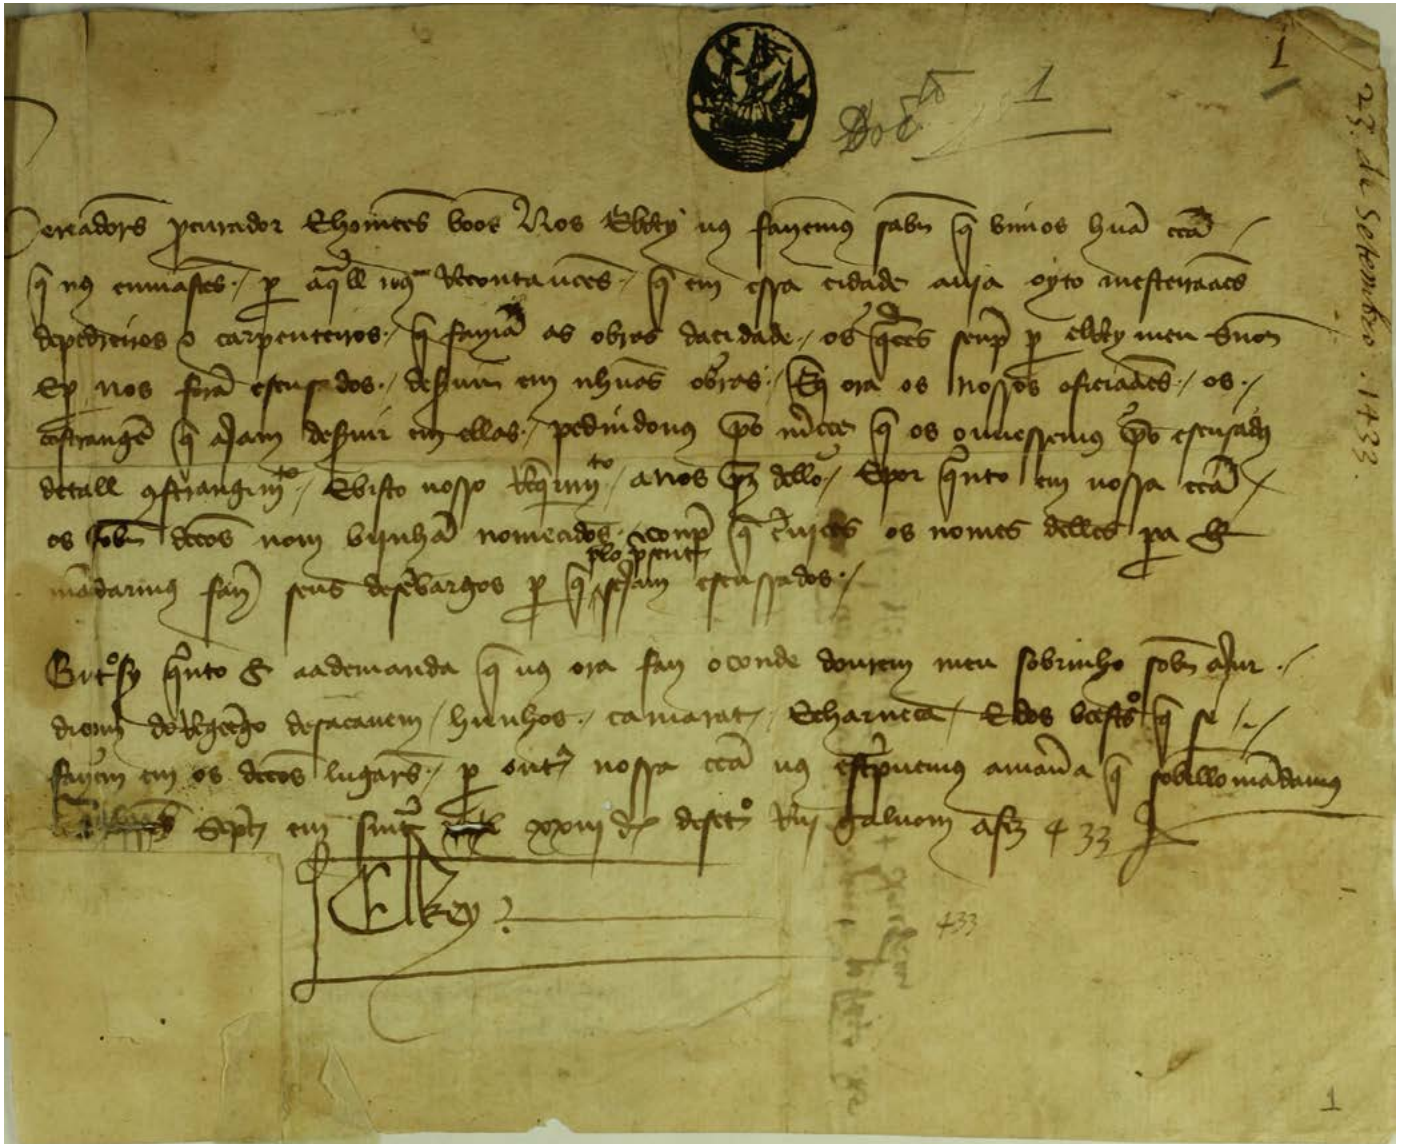 1
Doc to nº 1
23. de Setembro. 1433.
Vereadors procurador E homeens boos Nos ElRey vos fazemos saber q vimos huã carta
q vos enviastes / per aquall nos Recontavees / q em essa cidade avia oyto mesteiraaes
de pedreiros e carpenteiros / q faziã as obras da cidade / os quaees senpre per elRey meu Senor
E per nos forã escusados / de servir em nhuãs obras / E q ora os nossos oficiaaes / os
costrangẽ q ajam de servir em ellas / pedindonos por mercee q os ouvessemos por escusados
de tall costrangimto / E visto vosso Requerimto / a nos praz dello / E por quanto em vossa carta
os sobre dictos nom vijnhã nomeados conpre q os nomes delles pera
mãdarmos fazer seus desẽbargos per q sejam escussados
pello presente
Outrosy quanto he aa demanda q vos ora faz o conde dourem meu sobrinho sobre a jur
diçom do Regeengo de sacavem / hunhos / camarate / E charneca / E dos q se
fazem em os dictos lugares / per outra nossa carta vos escrpvemos a maneira q sobrello mãdamos
Scprita em sintra xxiii dias de setenbro Ruy galvom a fez 433
ElRey
433
1